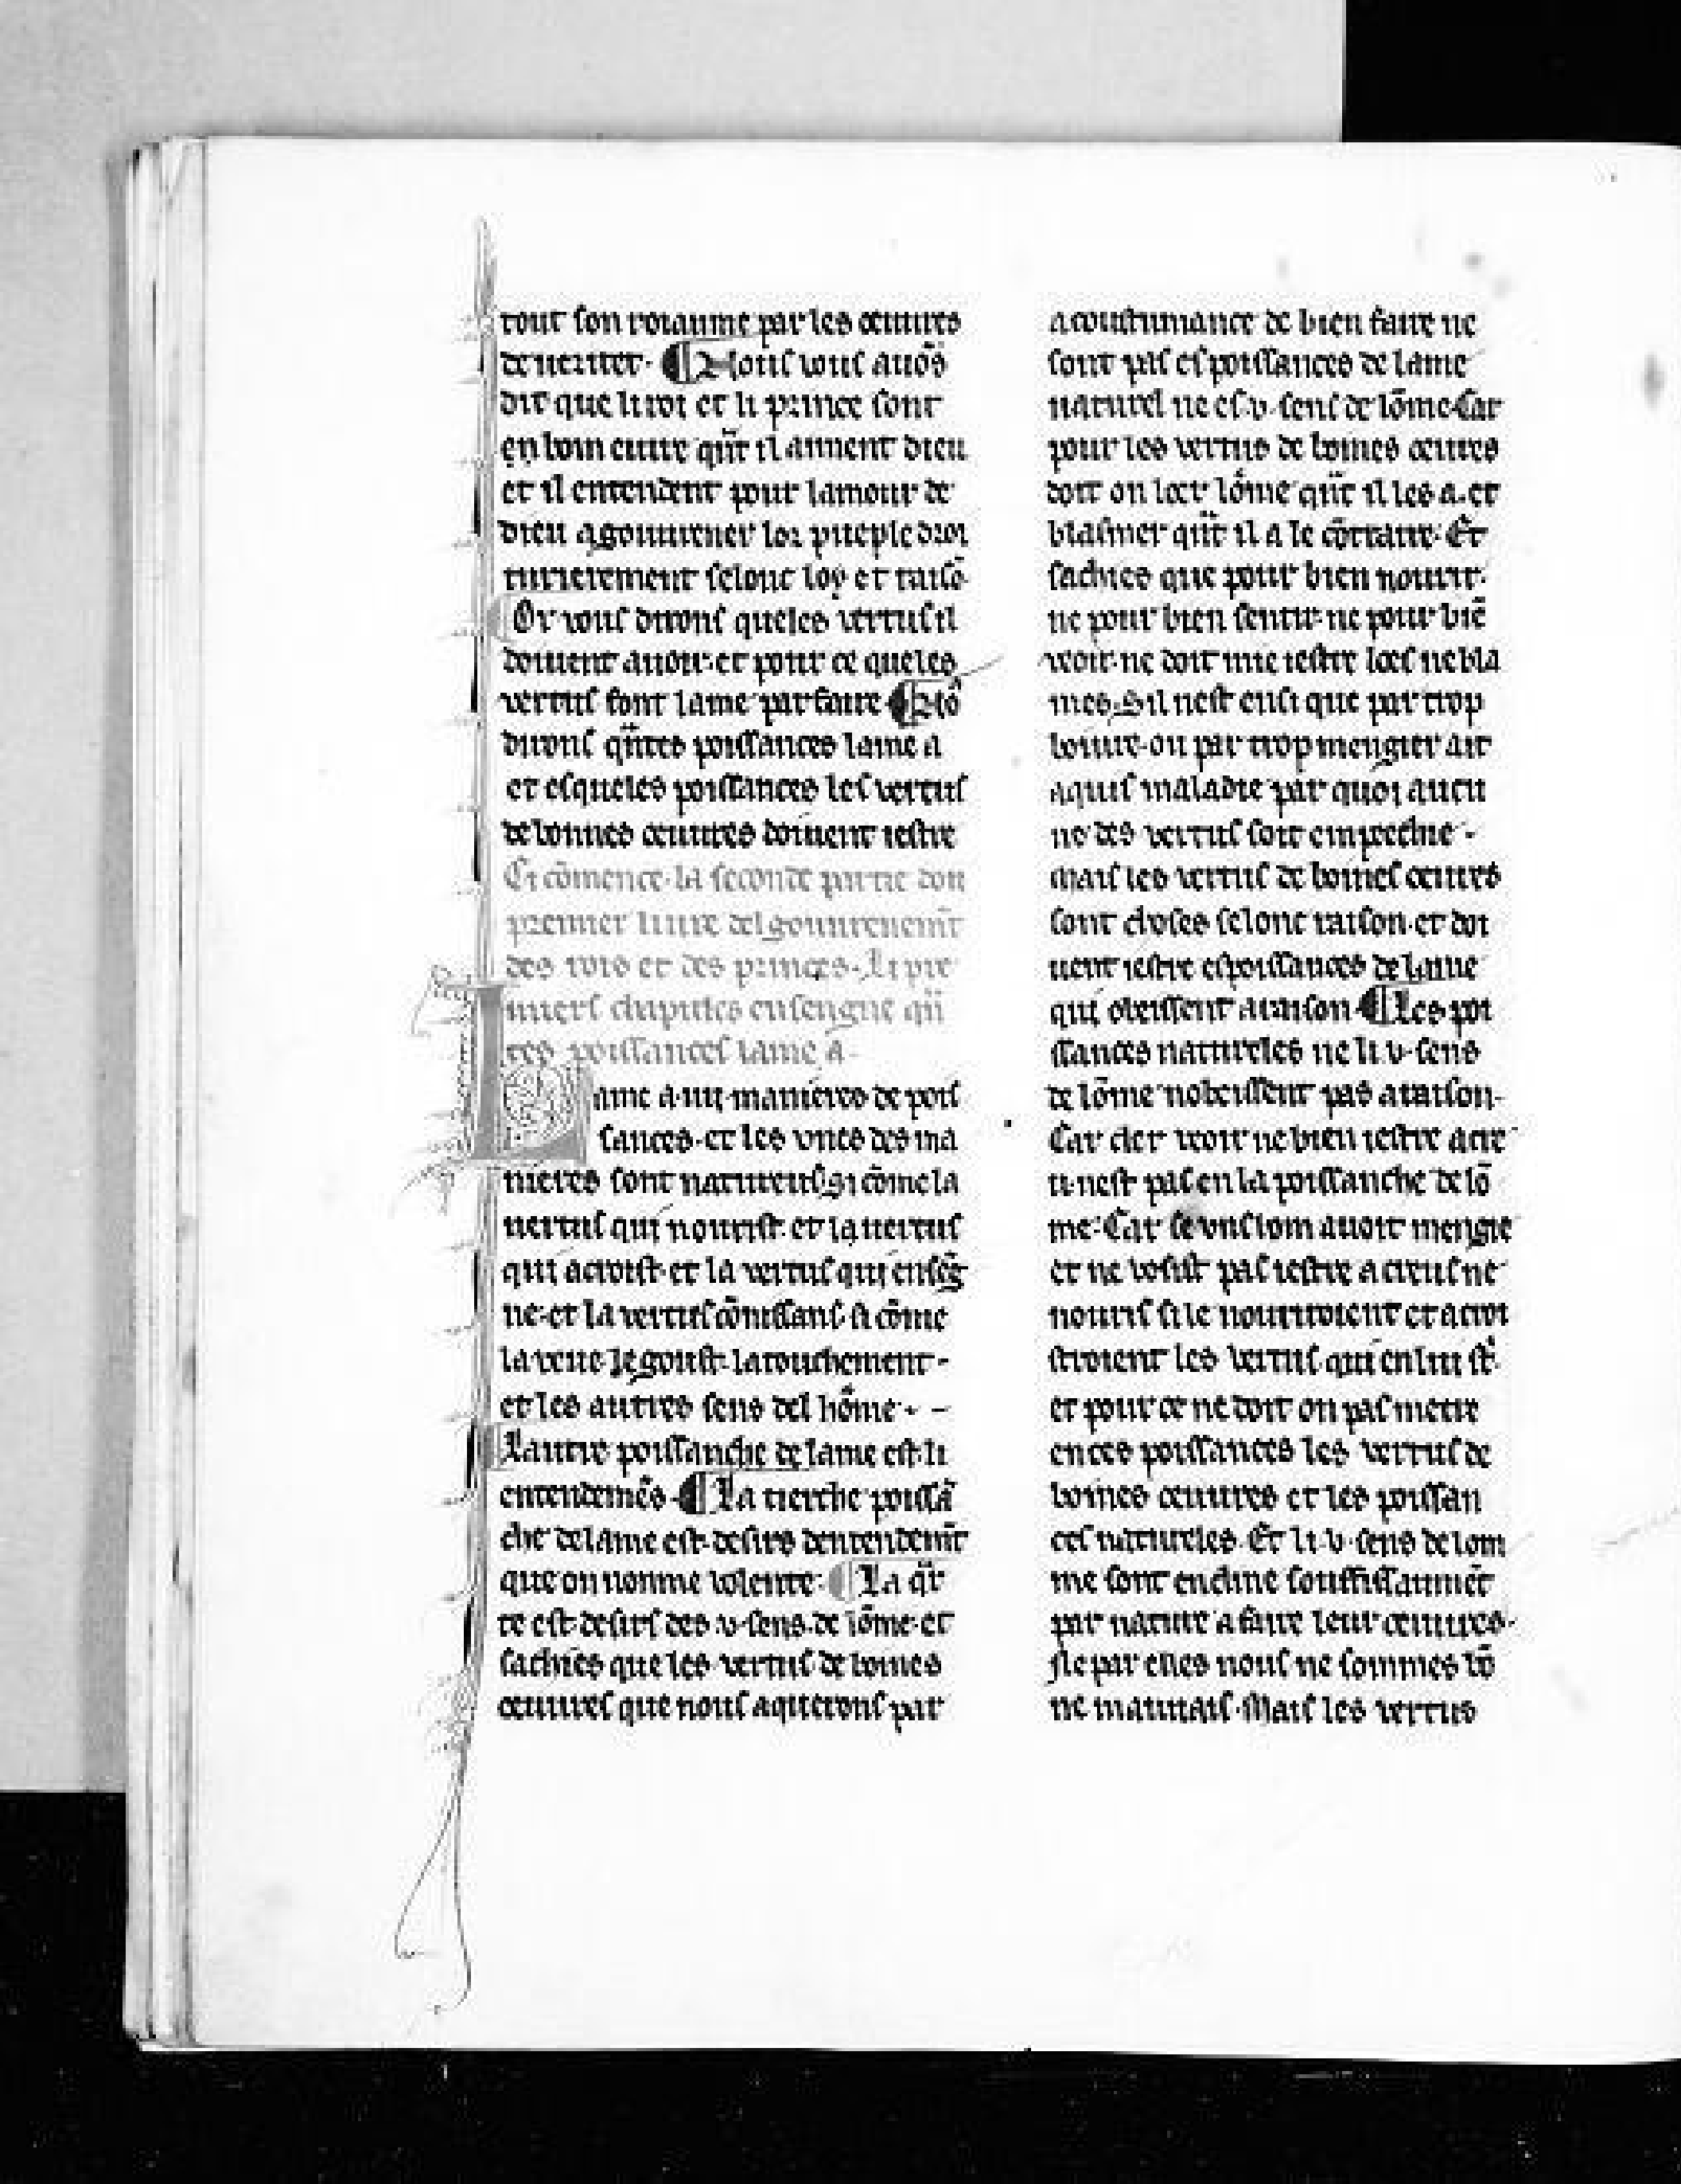 tout son roiaume par les œuures
de ueritet. ¶ Nous vous auōs
dit que li roi et li prince sont
en boin eure qn̄t il aiment dieu
et il entendent pour lamour de
dieu a gouuerner lor pueple droi
turierement selonc loy et raisō
Or vous dirons queles vertus il
doiuent auoir. et pour ce queles
vertus font lame parfaite ¶ Nō
dirons qn̄tes poissances lame a
et esqueles poissances les vertus
de bonnes œuures doiuent iestre
Ci cōmence. la seconde partie dou
premier liure del gouuernemn̄t
des rois et des princes. Li pre
miers chapitles ensengne qn̄
tes poissances lame a.
Lame a .iiij. manieres de pois
sances. et les vnes des ma
nieres sont natureus. si cōme la
uertus qui nourist. et la uertus
qui acroist. et la vertus qui ensēg
ne. et la vertus cōnissans. si cōme
la veue. le goust. latouchement.
et les autres sens del hōme. -
Lautre poissanche de lame est. li
entendemēs. ¶ La tierche poissā
che de lame est. desirs dentendemn̄t
que on nomme volente. ¶ La qr̄
te est. desirs des .v. sens. de lōme. et
sachies que les vertus de boines
œuures que nous aquerons par
acoustumance de bien faire ne
sont pas es poissances de lame
naturel ne es .v. sens de lōme. Car
pour les vertus de boines œuures
doit on loer lōme qn̄t il les a. et
blasmer qn̄t il a le cōtraire. Et
sachies que pour bien nourir.
ne pour bien sentir. ne pour biē
veoir. ne doit mie iestre loes ne bla
mes. Sil nest ensi que par trop
boiure. ou par trop mengier ait
aquis maladie par quoi aucu
ne des vertus soit empechie.
Mais les vertus de boines œuures
sont choses selonc raison. et doi
uent iestre es poissances de lame
qui obeissent a raison. ¶ Les poi
ssances natureles ne li .v. sens
de lōme nobeissent pas a raison.
Car cler veoir ne bien iestre acre
u. nest pas en la poissanche de lō
me. Car se vns hom auoit mengie
et ne vosist pas iestre acreus ne
nouris si le nouriroient et acroi
stroient les vertus qui en lui st̄.
et pour ce ne doit on pas metre
en ces poissances les vertus de
boines œuures et les poissan
ces natureles. Et li .v. sens de lom
me sont encline souffissaumēt
par nature a faire leur œuures.
Ne par elles nous ne sommes bō
ne mauuais. Mais les vertus